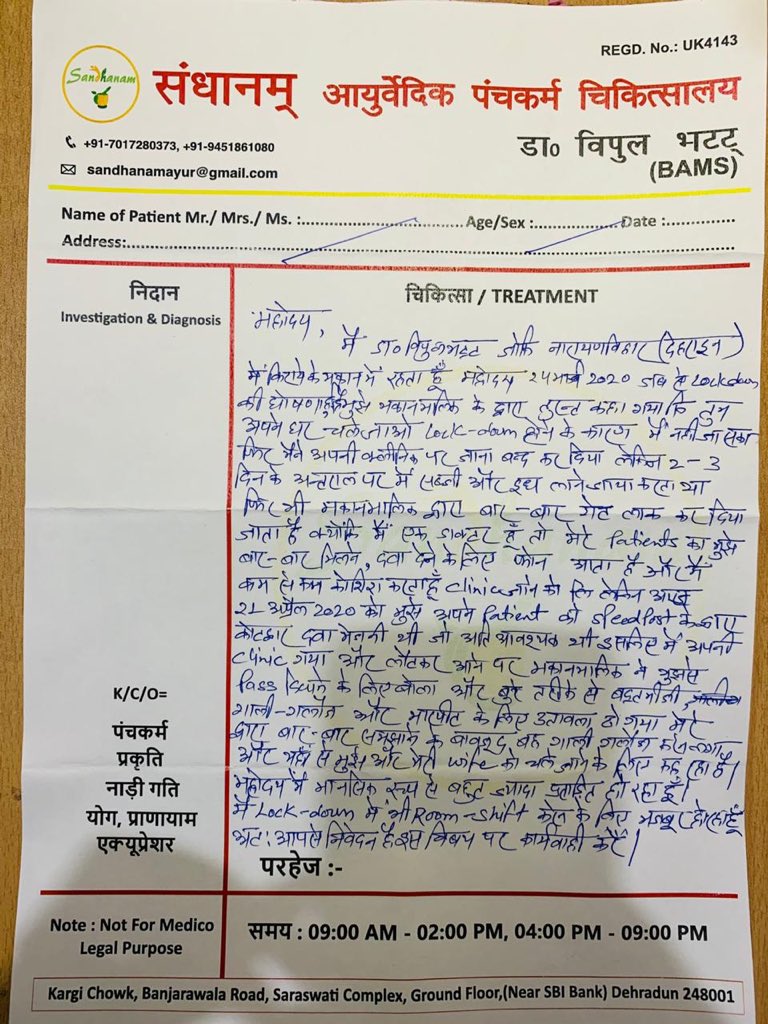 REGD. No.: UK4143
Sandhanam
संधानम् आयुर्वेदिक पंचकर्म चिकित्सालय
+91-7017280373, +91-9451861080
डा० विपुल भटट्
sandhanamayur@gmail.com
(BAMS)
Name of Patient Mr./ Mrs./ Ms. :.................... Age/Sex :............... Date :..............
Address:....................
निदान
Investigation & Diagnosis
चिकित्सा / TREATMENT
महोदय,
मैं डा० विपुल भट्ट जोकि नारायण विहार (देहरादून)
में किराये के मकान में रहता हूँ महोदय 24 मार्च 2020 जब से Lockdown
की घोषणा हुई है मुझे मकानमालिक के द्वारा तुरन्त कहा गया कि तुम
अपने घर चले जाओ Lock-down होने के कारण मैं नहीं जा सका
फिर मैंने अपनी क्लीनिक पर जाना बन्द कर दिया लेकिन 2-3
दिन के अन्तराल पर मैं सब्जी और दूध लाने जाया करता था
फिर भी मकानमालिक द्वारा बार-बार गेट लाक कर दिया
जाता है क्योंकि मैं एक डाक्टर हूँ तो मेरे Patients का मुझे
बार-बार मिलने, दवा देने के लिए फोन आता है और मैं
कम से कम कोशिश करता हूँ Clinic जाने को लेकिन
21 अप्रैल 2020 को मुझे अपने Patient को Speed Post के द्वारा
कोटद्वार दवा भेजनी थी जो अति आवश्यक थी इसलिए मैं अपनी
Clinic गया और लौटकर आने पर मकानमालिक ने मुझसे
Pass दिखाने के लिए बोला और बुरे तरीके से बदतमीजी,
गाली-गलौज और मारपीट के लिए उतावला हो गया मेरे
द्वारा बार-बार समझाने के बावजूद वह गाली गलौज करने लगा
और यहाँ से मुझे और मेरी wife को चले जाने के लिए कह रहा है।
महोदय मैं मानसिक रूप से बहुत ज्यादा प्रताड़ित हो रहा हूँ।
मैं Lock-down में भी Room-shift करने के लिए मजबूर हो रहा हूँ
अतः आपसे निवेदन है इस विषय पर कार्यवाही करें।
K/C/O=
पंचकर्म
प्रकृति
नाड़ी गति
योग, प्राणायाम
एक्यूप्रेशर
परहेज :-
Note : Not For Medico
Legal Purpose
समय : 09:00 AM - 02:00 PM, 04:00 PM - 09:00 PM
Kargi Chowk, Banjarawala Road, Saraswati Complex, Ground Floor,(Near SBI Bank) Dehradun 248001